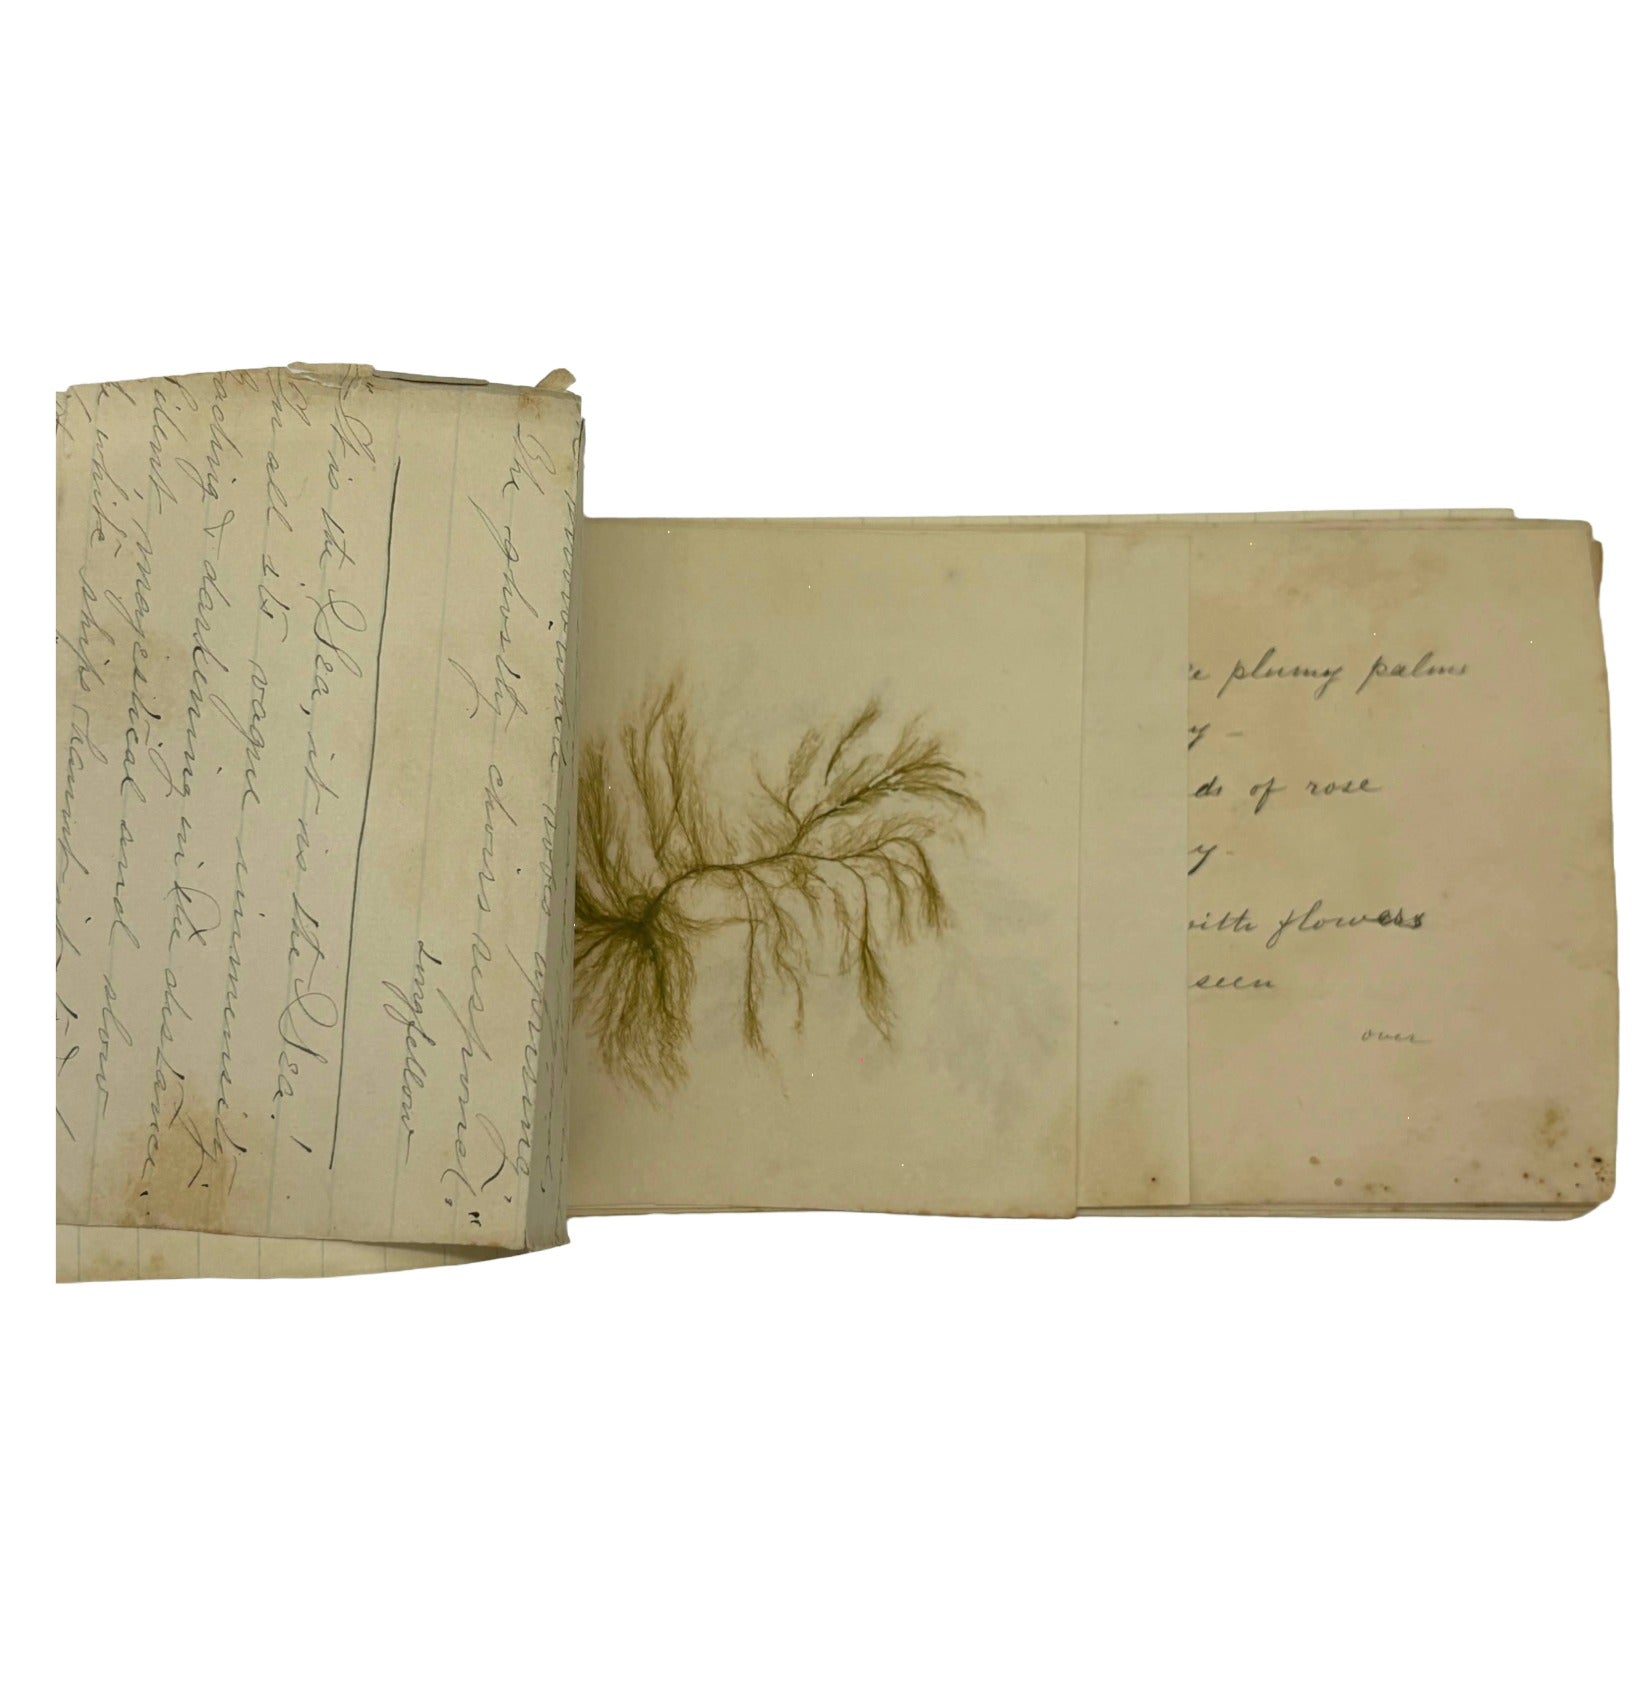 The ghostly choirs respond."
Longfellow
"It is the Sea, it is the Sea!
In all its vague immensity
& darkening in the distance.
silent, majestical and slow
white ships haunt it
plumy palms
y –
ds of rose
y –
with flowers
seen
over